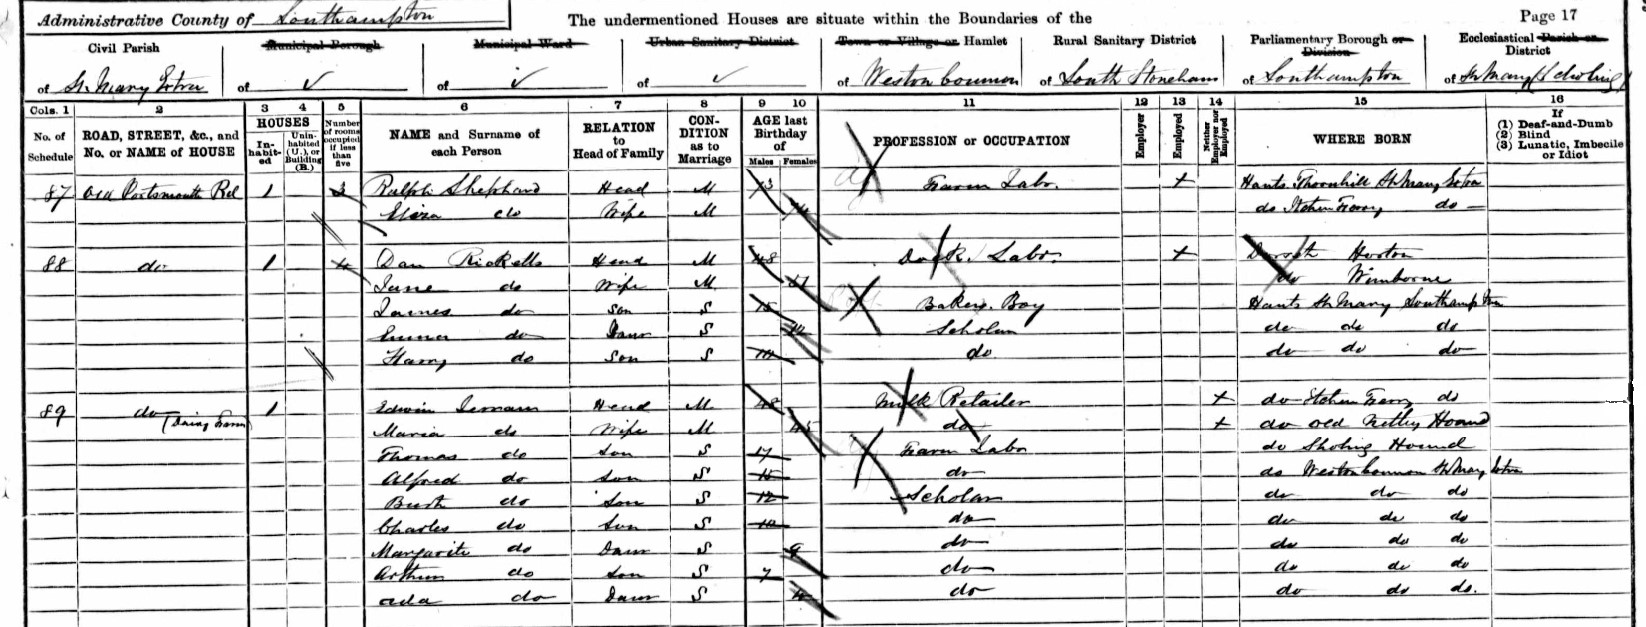 Administrative County of Southampton The undermentioned Houses are situate within the Boundaries of the Page 17
Civil Parish Municipal Borough Municipal Ward Urban Sanitary District Town or Village or Hamlet Rural Sanitary District Parliamentary Borough or Division Ecclesiastical Parish or District
of St. Mary Extra of ✓ of ✓ of ✓ of Weston Common of South Stoneham of Southampton of St Mary (Sholing)
Cols. 1 2 3 4 5 6 7 8 9 10 11 12 13 14 15 16
No. of Schedule ROAD, STREET, &c., and No. or NAME of HOUSE HOUSES Inhabited Uninhabited (U.), or Building (B.) Number of rooms occupied if less than five NAME and Surname of each Person RELATION to Head of Family CONDITION as to Marriage AGE last Birthday of Males Females PROFESSION or OCCUPATION Employer Employed Neither Employer nor Employed WHERE BORN If (1) Deaf-and-Dumb (2) Blind (3) Lunatic, Imbecile or Idiot
87 Old Portsmouth Rd 1 3 Ralph Shephard Head M 73 Farm Labr. + Hants Thornhill St Mary Extra
Eliza do Wife M 74 do Itchen Ferry do
88 do 1 4 Dan Ricketts Head M 48 Dock Labr. + Dorset Horton
Jane do Wife M 51 do Wimborne
James do Son S 15 Bakers Boy Hants St Mary Southampton
Emma do Daur S Scholar do do do
Harry do Son S 10 do do do do
89 do (Dairy Farm) 1 Edwin Head M 48 Milk Retailer + do Itchen Ferry do
Maria do Wife M 45 do + do Old Netley Hound
Thomas do Son S 17 Farm Labr do Sholing Hound
Alfred do Son S 15 do do Weston Common St Mary Extra
do Son S 12 Scholar do do do
Charles do Son S 10 do do do do
Margarite do Daur S 9 do do do do
Arthur do Son S 7 do do do do
Ada do Daur S 4 do do do do.